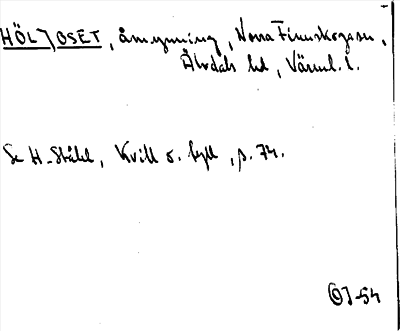 HÖLJOSET, åmynning, Norra Finnskogasn,
Älvdals hd, Värml. l.
Se H. Ståhl, Kvill o. fyll, s. 74.
OJ-54